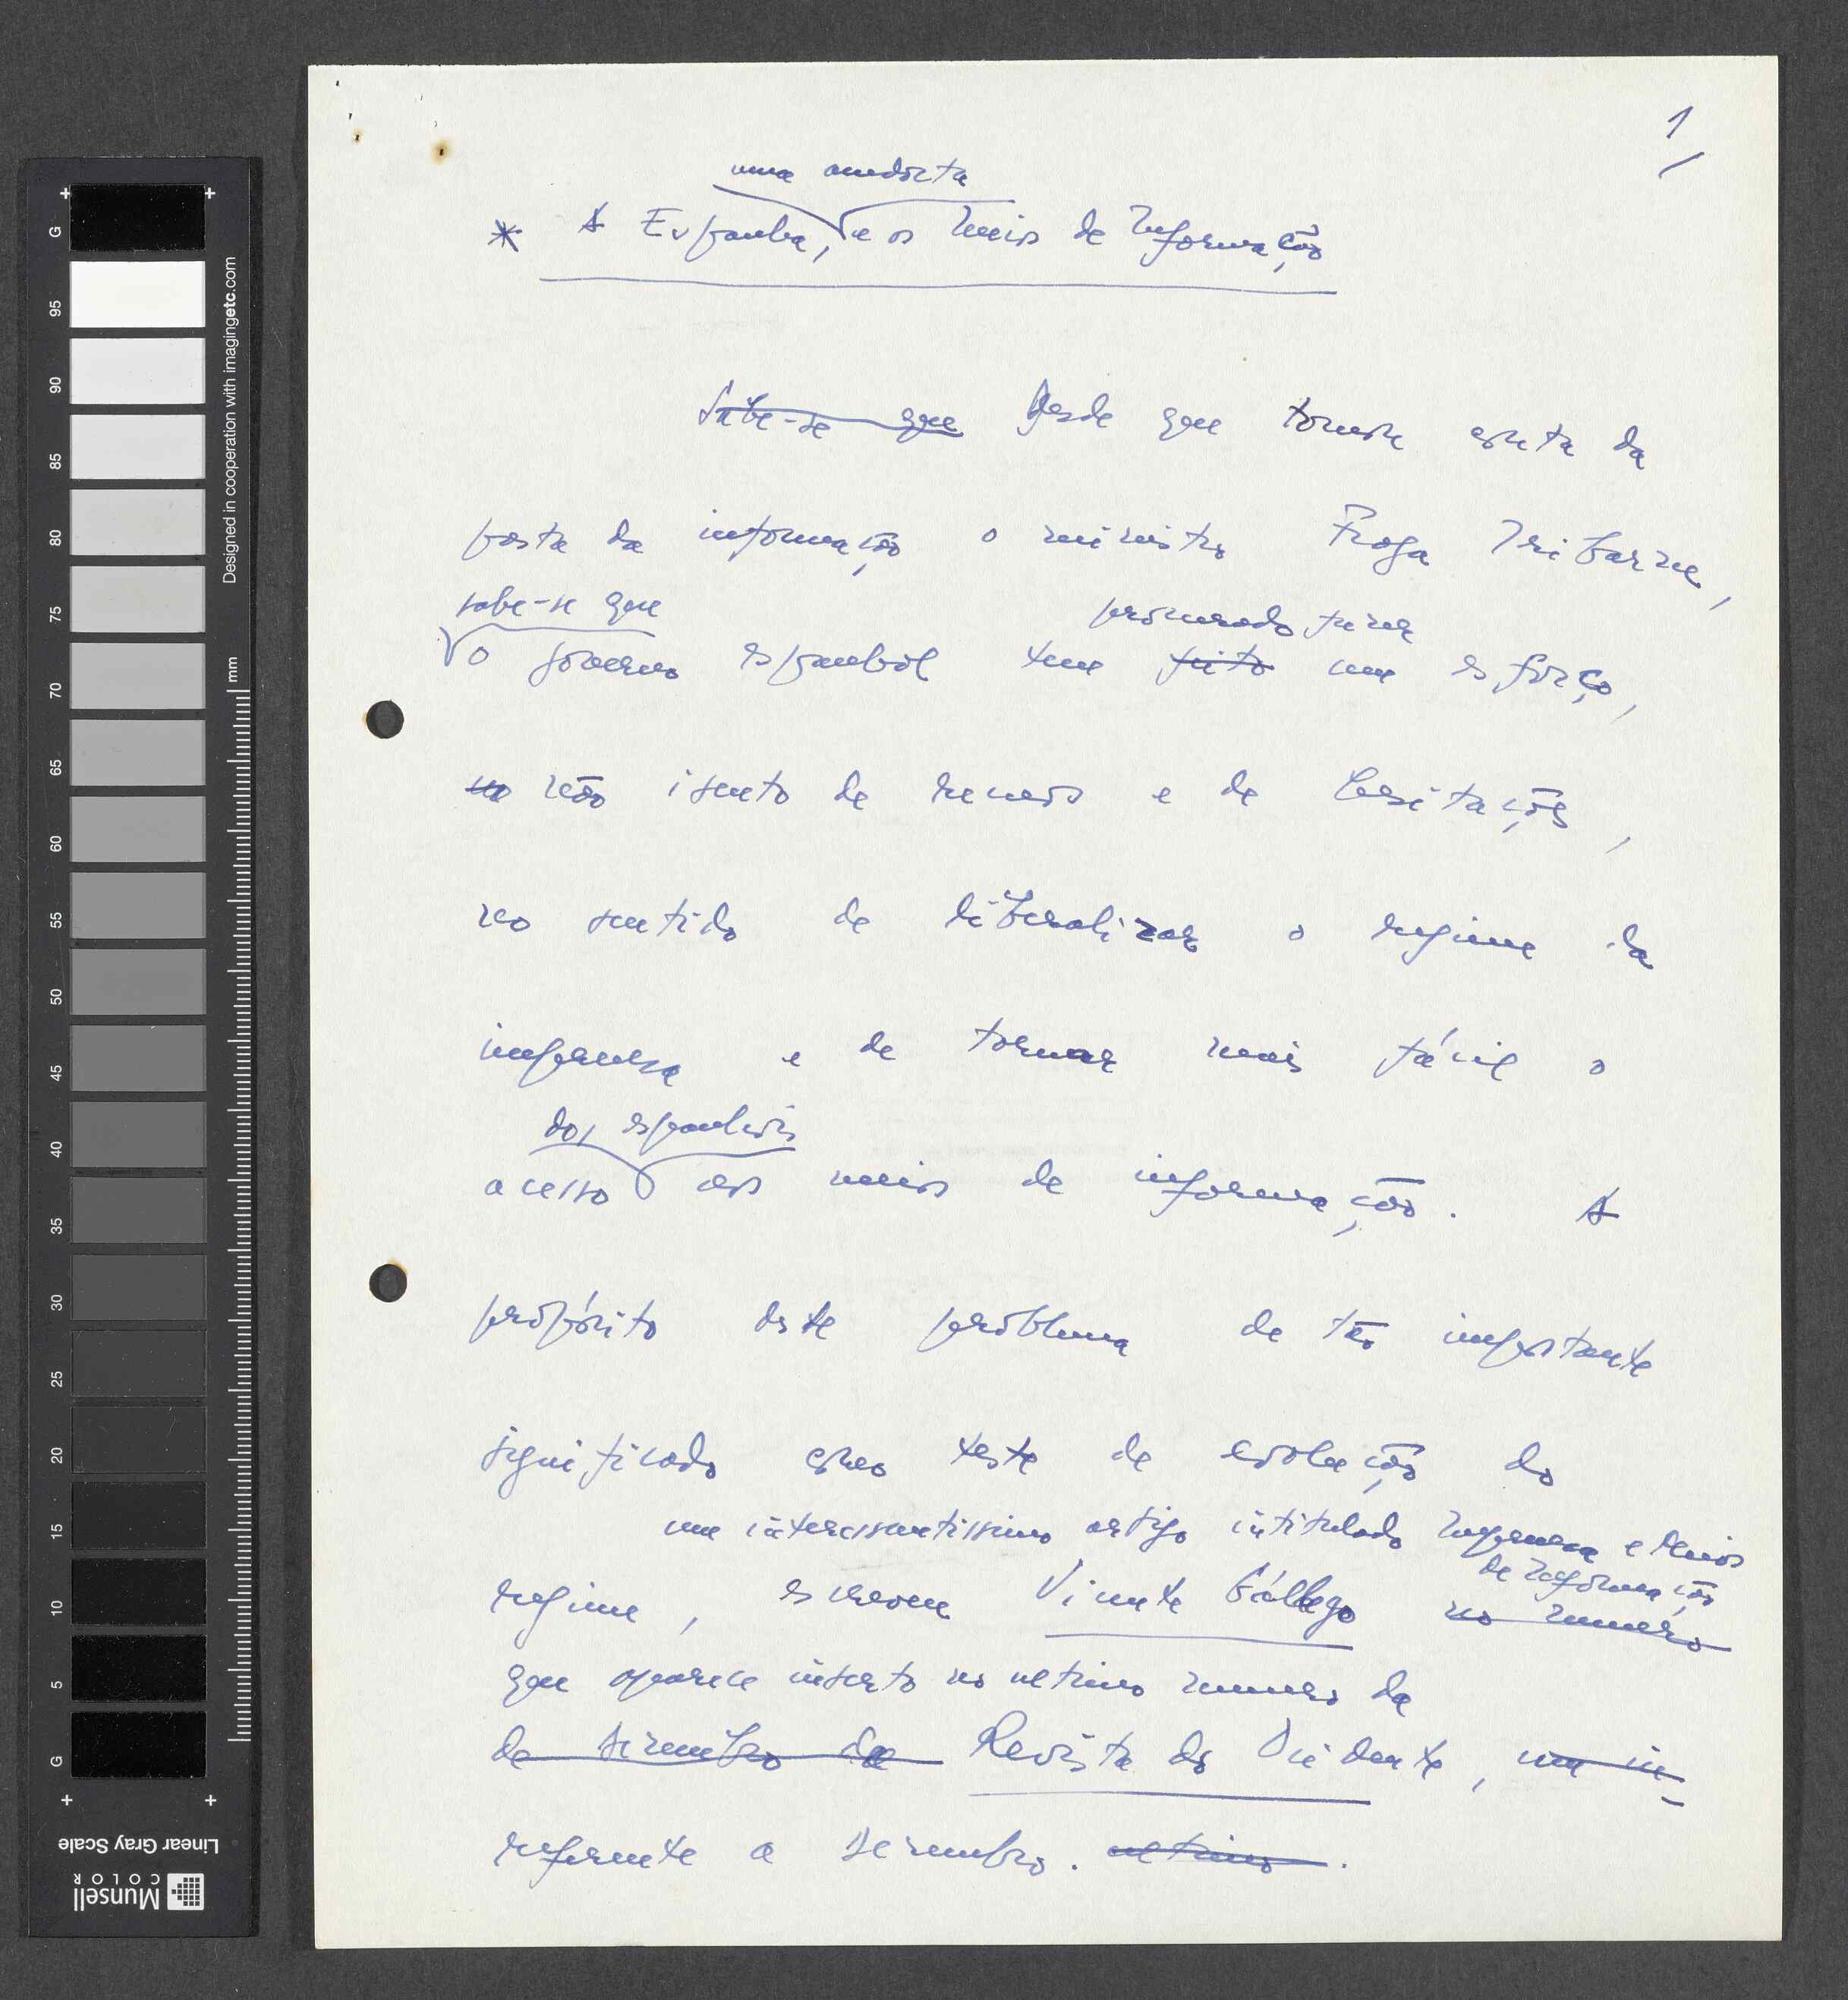 1/
uma anedocta
* A Espanha, e os Meios de Informação
Sabe-se que Desde que tomou conta da
pasta da informação o ministro Fraga Iribarne,
sabe-se que
procurado fazer
o governo espanhol tem feito um esforço,
não isento de recuos e de hesitações,
no sentido de liberalizar o regime da
imprensa e de tornar mais fácil o
dos espanhóis
acesso aos meios de informação. A
propósito deste problema de tão importante
significado como teste de evolução do
um interessantíssimo artigo intitulado Imprensa e Meios
de Informação
regime, escreveu Vicente Gállego no numero
que aparece inserto no ultimo numero da
de Dezembro da Revista do Ocidente, um in-
referente a Dezembro. ultimo.
G 95 90 85 80 75 70 65 60 55 50 45 40 35 30 25 20 15 10 5 G
Designed in cooperation with imagingetc.com
mm
Linear Gray Scale
Munsell
COLOR